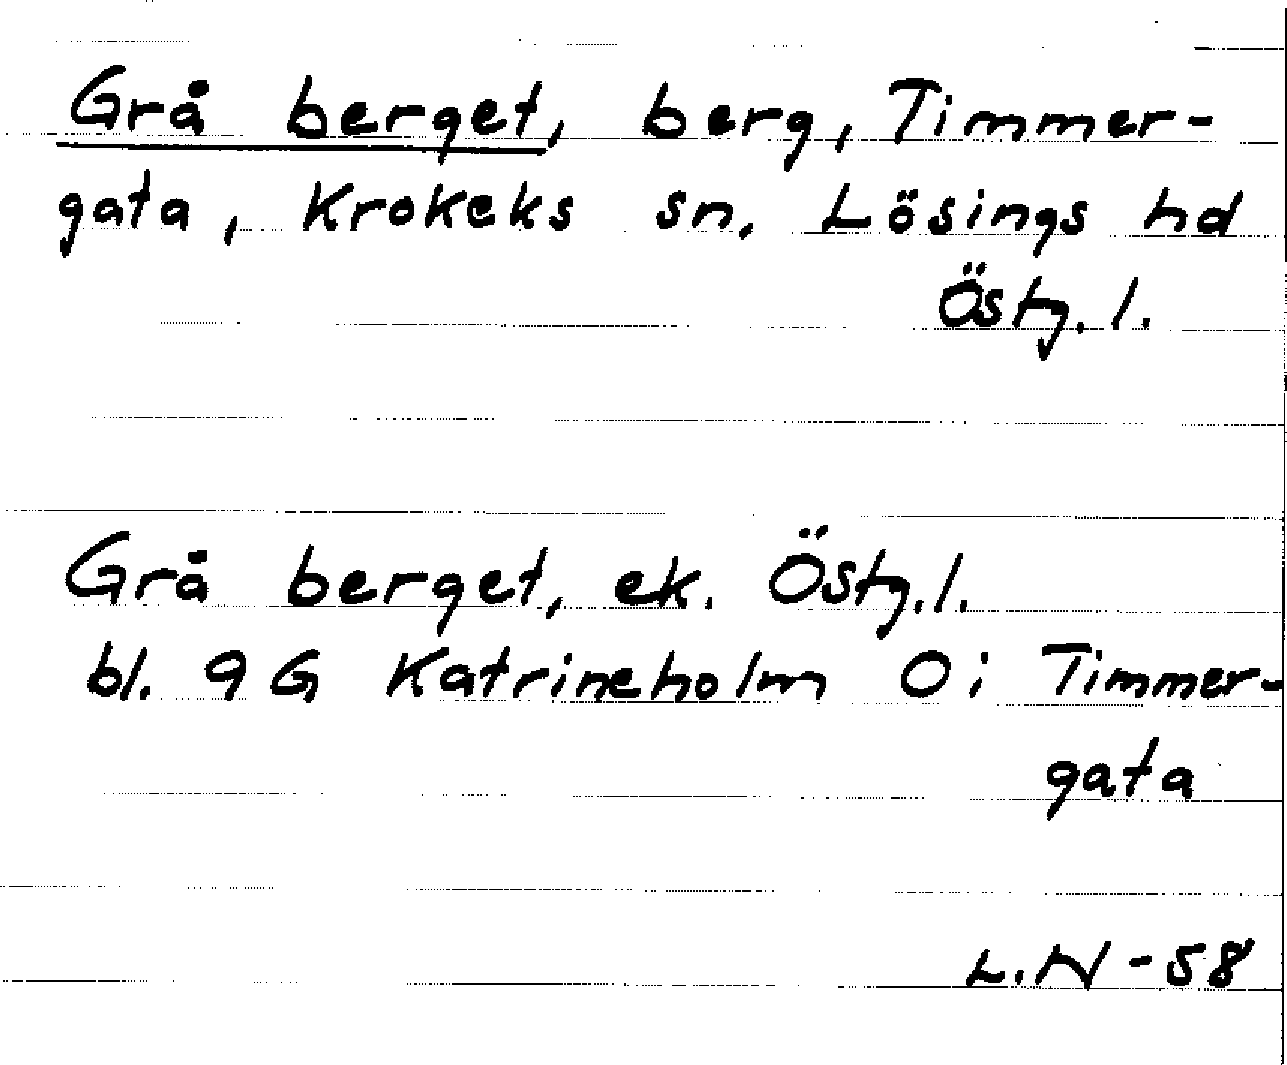 Grå berget, berg, Timmer-
gata, Krokeks sn. Lösings hd
Östg. l.
Grå berget, ek. Östg. l.
bl. 9 G Katrineholm O i Timmer-
gata
L.N -58